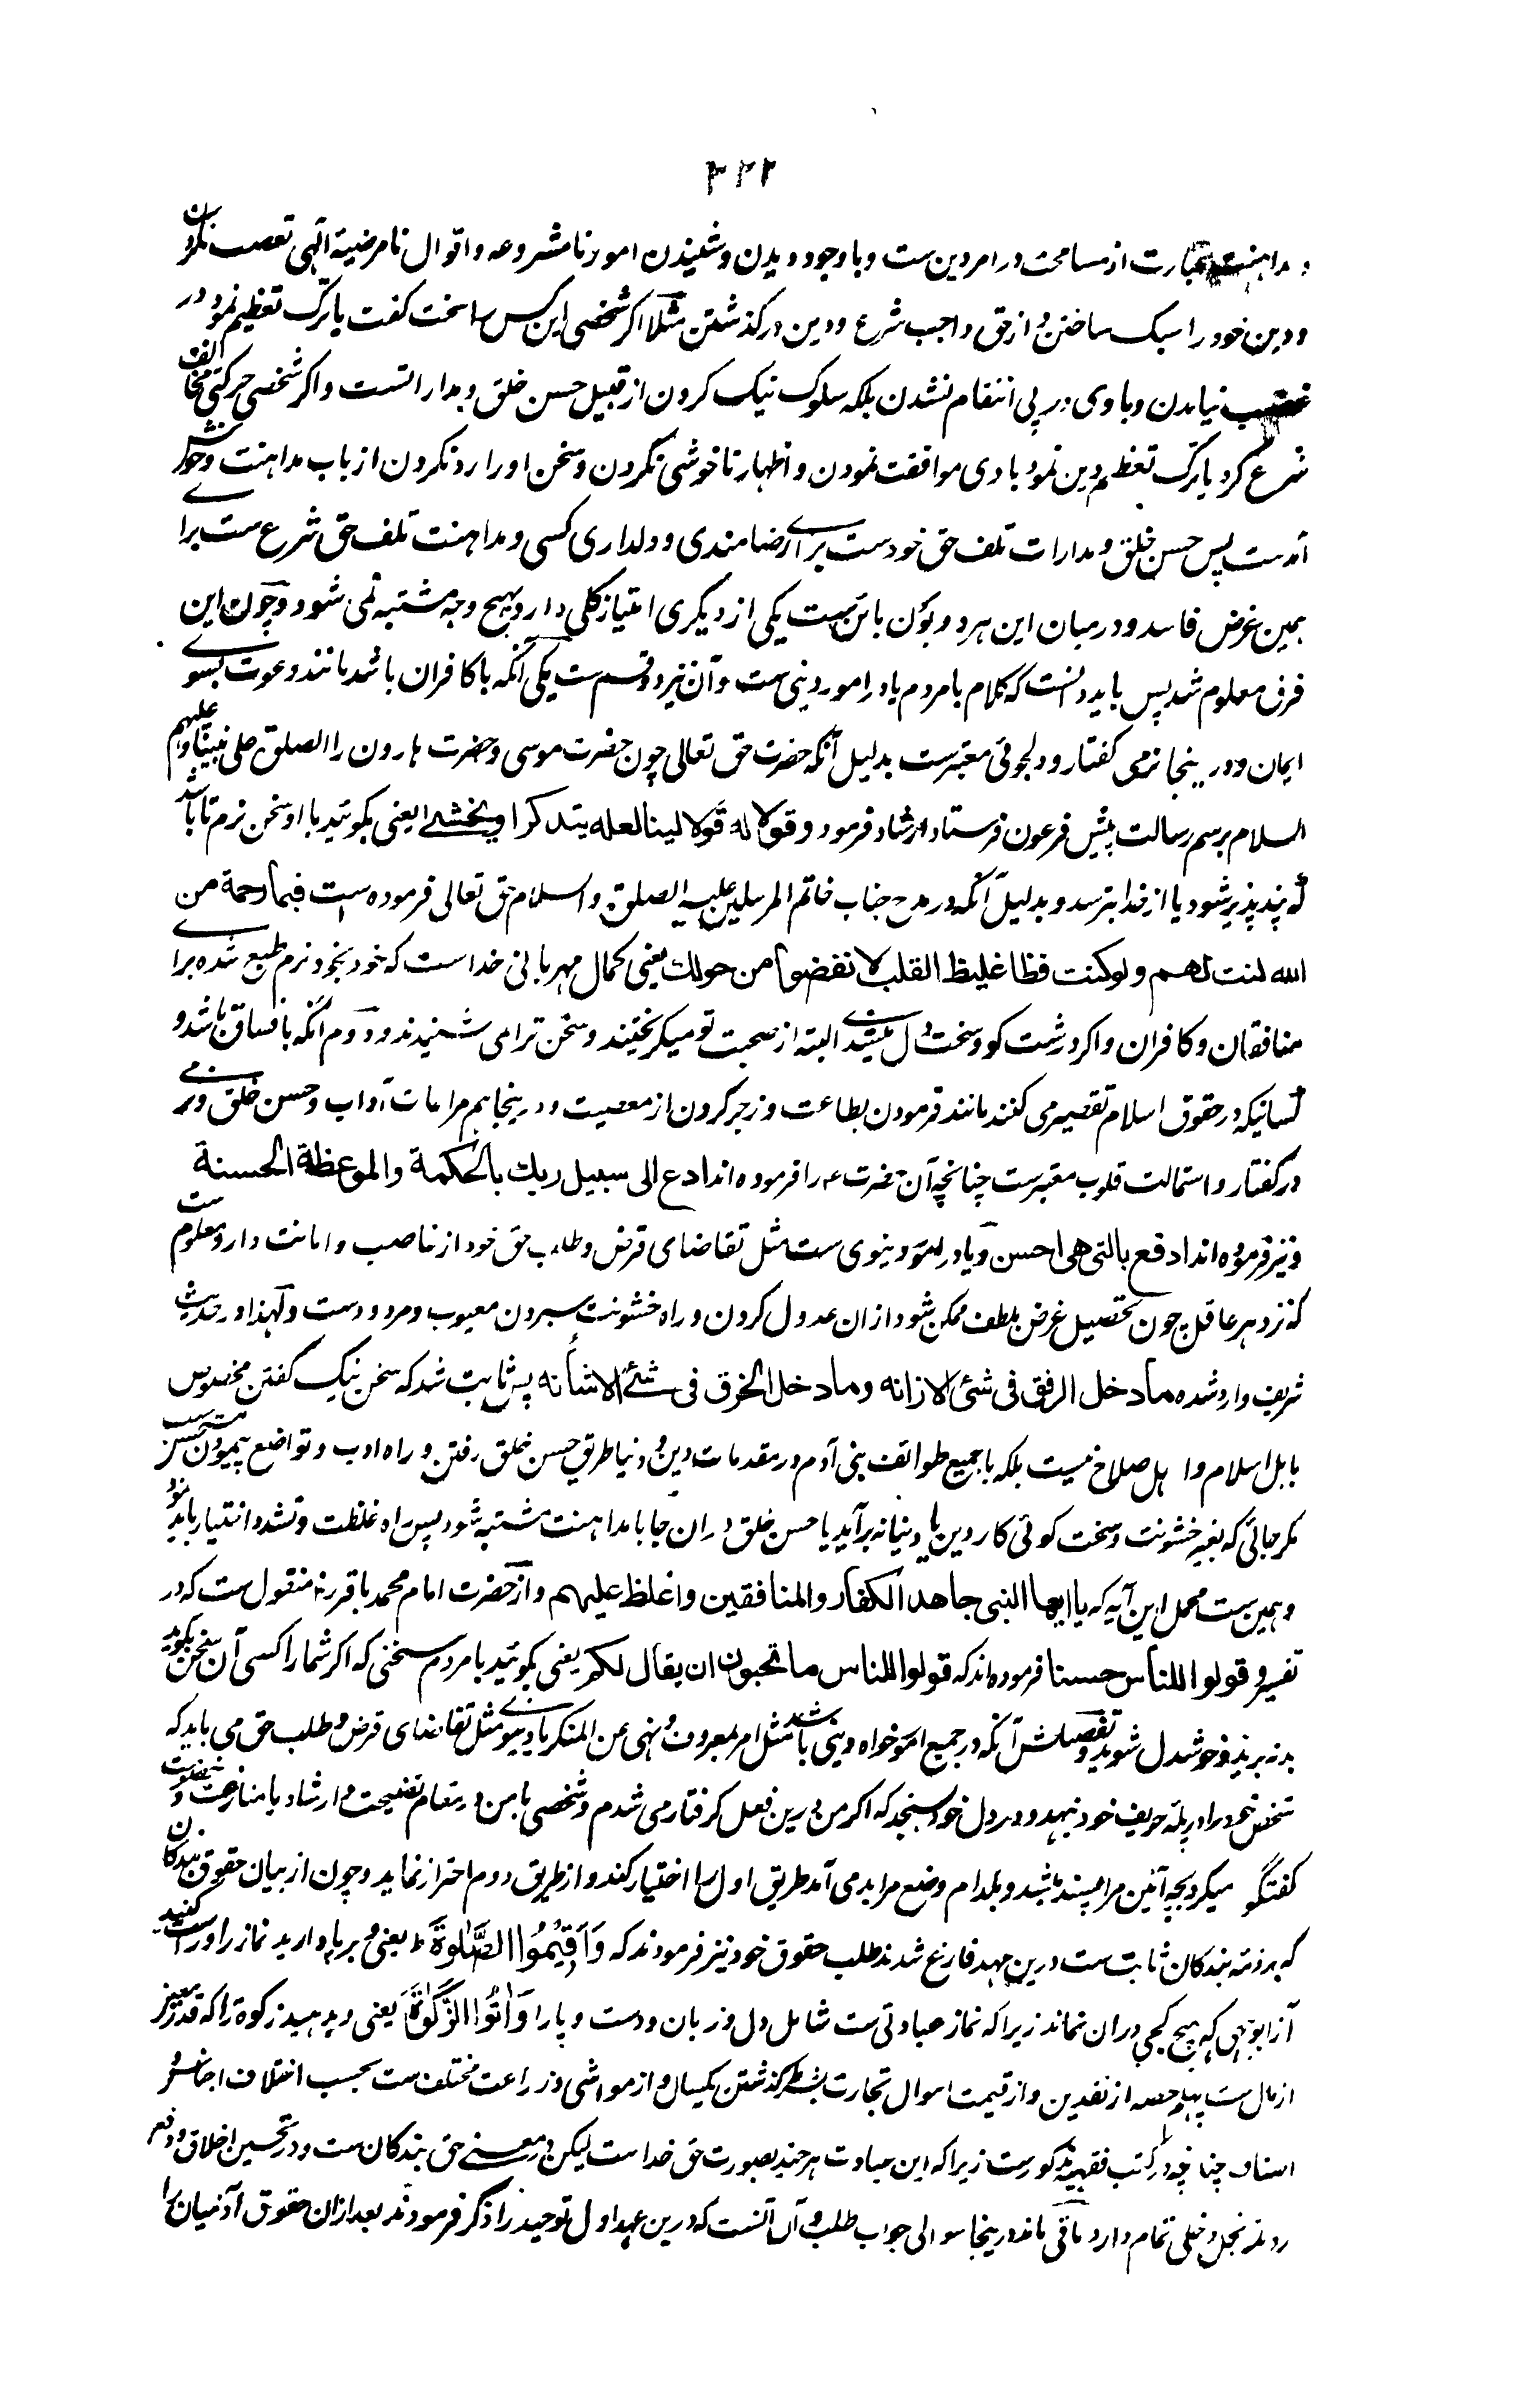 ۳۲۲
و مداهنت عبارت از مسامحت در امر دین ست و با وجود دیدن و شنیدن امور نامشروعه و اقوال نامرضیهٔ الهی تعصب نکردن
و دین خود را سبک ساختن و از حق واجب شرع و دین در گذشتن مثلا اگر شخصی این کس را سخت گفت یا ترک تعظیم نمود در
غضب نیامدن و با وی در پی انتقام نشدن بلکه سلوک نیک کردن از قبیل حسن خلق و مداراتست و اگر شخصی حرکتی مخالف
شرع کرد یا ترک تعظیم دین نمود با وی موافقت نمودن و اظهار ناخوشی نکردن و سخن او را رد نکردن از باب مداهنت و خوشـ
آمدست پس حسن خلق و مدارات تلف حق خودست برای رضامندی و دلداری کسی و مداهنت تلف حق شرع ست برای
همین غرض فاسد و درمیان این هر دو بون بائن ست یکی از دیگری امتیاز کلی دارد بهیچ وجه مشتبه نمی شود و چون این
فرق معلوم شد پس باید دانست که کلام با مردم یا در امور دینی ست و آن نیز دو قسم ست یکی آنکه با کافران باشد مانند دعوت بسوی
ایمان و درینجا نرمی گفتار و دلجوئی معتبرست بدلیل آنکه حضرت حق تعالی چون حضرت موسی و حضرت هارون را الصلوة علی نبینا و علیهم
السلام برسم رسالت پیش فرعون فرستاد ارشاد فرمود و قولا له قولا لینا لعله یتذکر او یخشی یعنی بگوئید با او سخن نرم تا باشد
که پند پذیر شود یا از خدا بترسد و بدلیل آنکه در مدح جناب خاتم المرسلین علیه الصلوة و السلام حق تعالی فرموده است فبما رحمة من
الله لنت لهم ولو کنت فظا غلیظ القلب لانفضوا من حولک یعنی بکمال مهربانی خداست که خود بخود نرم طبع شده برای
منافقان و کافران و اگر درشت گو و سخت دل میشدی البته از صحبت تو میگریختند و سخن ترا می شنیدند و دوم آنکه با فساق باشد و
کسانیکه در حقوق اسلام تقصیر می کنند مانند فرمودن بطاعت و زجر کردن از معصیت و درینجا هم مراعات آداب و حسن خلق و نرمی
در گفتار و استمالت قلوب معتبرست چنانچه آن حضرت ؐ را فرموده اند ادع الی سبیل ربک بالحکمة والموعظة الحسنة
و نیز فرموده اند ادفع بالتی هی احسن و یا در امور دنیوی ست مثل تقاضای قرض و طلب حق خود از غاصب و امانت دار و معلوم ست
که نزد هر عاقل چون تحصیل غرض بلطف ممکن شود از ان عدول کردن و راه خشونت سپردن معیوب و مردودست و لهذا در حدیث
شریف وارد شده ما دخل الرفق فی شئ الا زانه وما دخل الخرق فی شئ الا شانه پس ثابت شد که سخن نیک گفتن مخصوص
با اهل اسلام و اهل صلاح نیست بلکه با جمیع طوائف بنی آدم در مقدمات دین و دنیا طریق حسن خلق رفتن و راه ادب و تواضع پیمودن مستحسن ست
مگر جائی که بغیر خشونت و سخت گوئی کار دین یا دنیا نه برآید یا حسن خلق در ان جا با مداهنت مشتبه شود پس راه غلظت و تشدد اختیار باید نمود
و همین ست محمل این آیه که یا ایها النبی جاهد الکفار والمنافقین واغلظ علیهم و از حضرت امام محمد باقر رضـ منقول ست که در
تفسیر و قولوا للناس حسنا فرموده اند که قولوا للناس ما تحبون ان یقال لکم یعنی بگوئید با مردم سخنی که اگر شما را کسی آن سخن بگوید
بد نه برید و خوشدل شوید و تفصیلش آنکه در جمیع امور خواه دینی باشد مثل امر بمعروف و نهی عن المنکر یا دنیوی مثل تقاضای قرض و طلب حق می باید که
شخص خود را در پلهٔ حریف خود نهد و در دل خود سنجد که اگر من درین فعل گرفتار می شدم و شخصی با من در مقام نصیحت و ارشاد یا منازعت و خصومت
گفتگو میکرد بچه آئین مرا پسند باشد و بکدام وضع مرا بد می آمد طریق اول را اختیار کند و از طریق دوم احتراز نماید و چون از بیان حقوق بندگان
که بر ذمه بندگان ثابت ست درین عهد فارغ شدند طلب حقوق خود نیز فرمودند که وَاَقِیْمُوا الصَّلٰوةَ ط یعنی و برپا دارید نماز را و راست کنید
آنرا بوجهی که هیچ کجی در ان نماند زیرا که نماز عبادتی ست شامل دل و زبان و دست و پا را وَاٰتُوا الزَّکٰوةَ یعنی و بدهید زکوة را که قدر معین
از مال ست چهلم حصه از نقدین و از قیمت اموال تجارت بشرط گذشتن یکسال و از مواشی و زراعت مختلف ست بحسب اختلاف اجناس و
اصناف چنانچه در کتب فقهیه مذکورست زیرا که این عبادت هر چند بصورت حق خداست لیکن در معنی حق بندگان ست و در تحسین اخلاق و دفع
رذیله بخل دخلی تمام دارد باقی ماند درینجا سوالی جواب طلب و آن آنست که درین عهد اول توحید را ذکر فرمودند بعد از ان حقوق آدمیان را